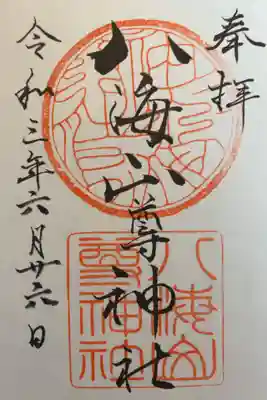 奉拝
八海山尊神社
令和三年六月廿六日
八海山
尊神社